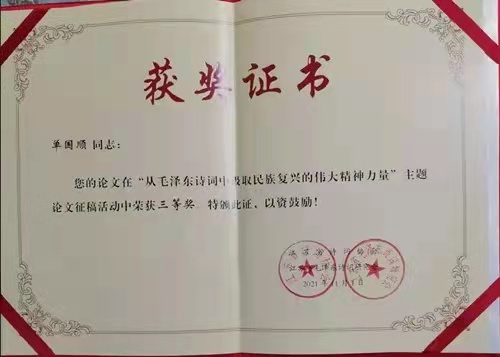 获奖证书
单国顺 同志：
您的论文在“从毛泽东诗词中汲取民族复兴的伟大精神力量”主题
论文征稿活动中荣获三等奖，特颁此证，以资鼓励！
2021年11月1日